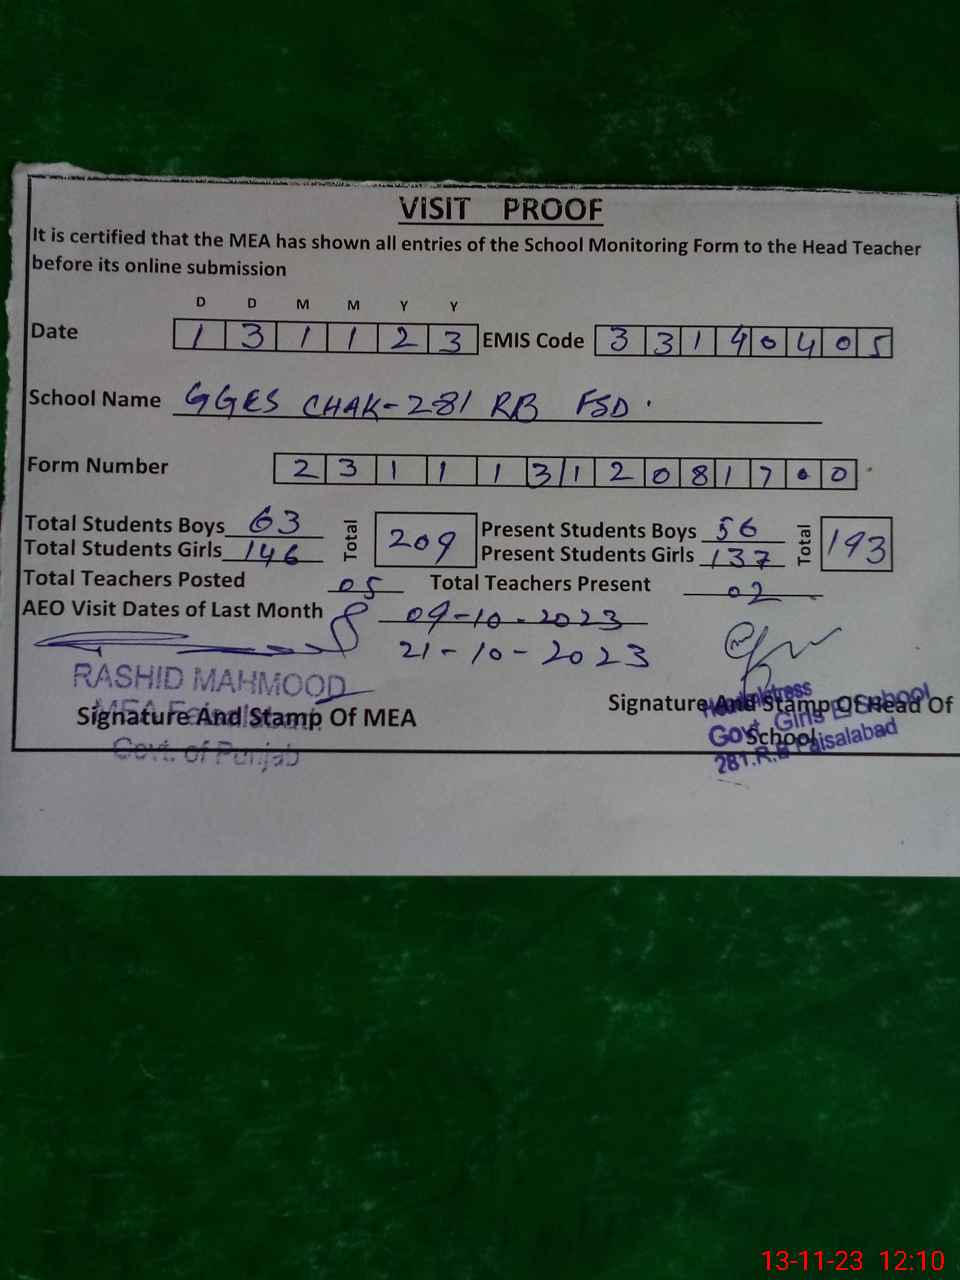 VISIT PROOF
It is certified that the MEA has shown all entries of the School Monitoring Form to the Head Teacher
before its online submission
D D M M Y Y
Date 1 3 1 1 2 3 EMIS Code 3 3 1 9 0 4 0 5
School Name GGES CHAK-281 RB FSD.
Form Number 2 3 1 1 1 3 1 2 0 8 1 7 0 0
Total Students Boys 63 Total 209 Present Students Boys 56 Total 193
Total Students Girls 146 Present Students Girls 137
Total Teachers Posted 05 Total Teachers Present 02
AEO Visit Dates of Last Month 09-10-2023
21-10-2023
RASHID MAHMOOD
MEA Faisalabad
Signature And Stamp Of MEA
Govt. of Punjab
Signature And Stamp Of Head Of
School
Headmistress
Govt. Girls E School
281.R.B Faisalabad
13-11-23 12:10